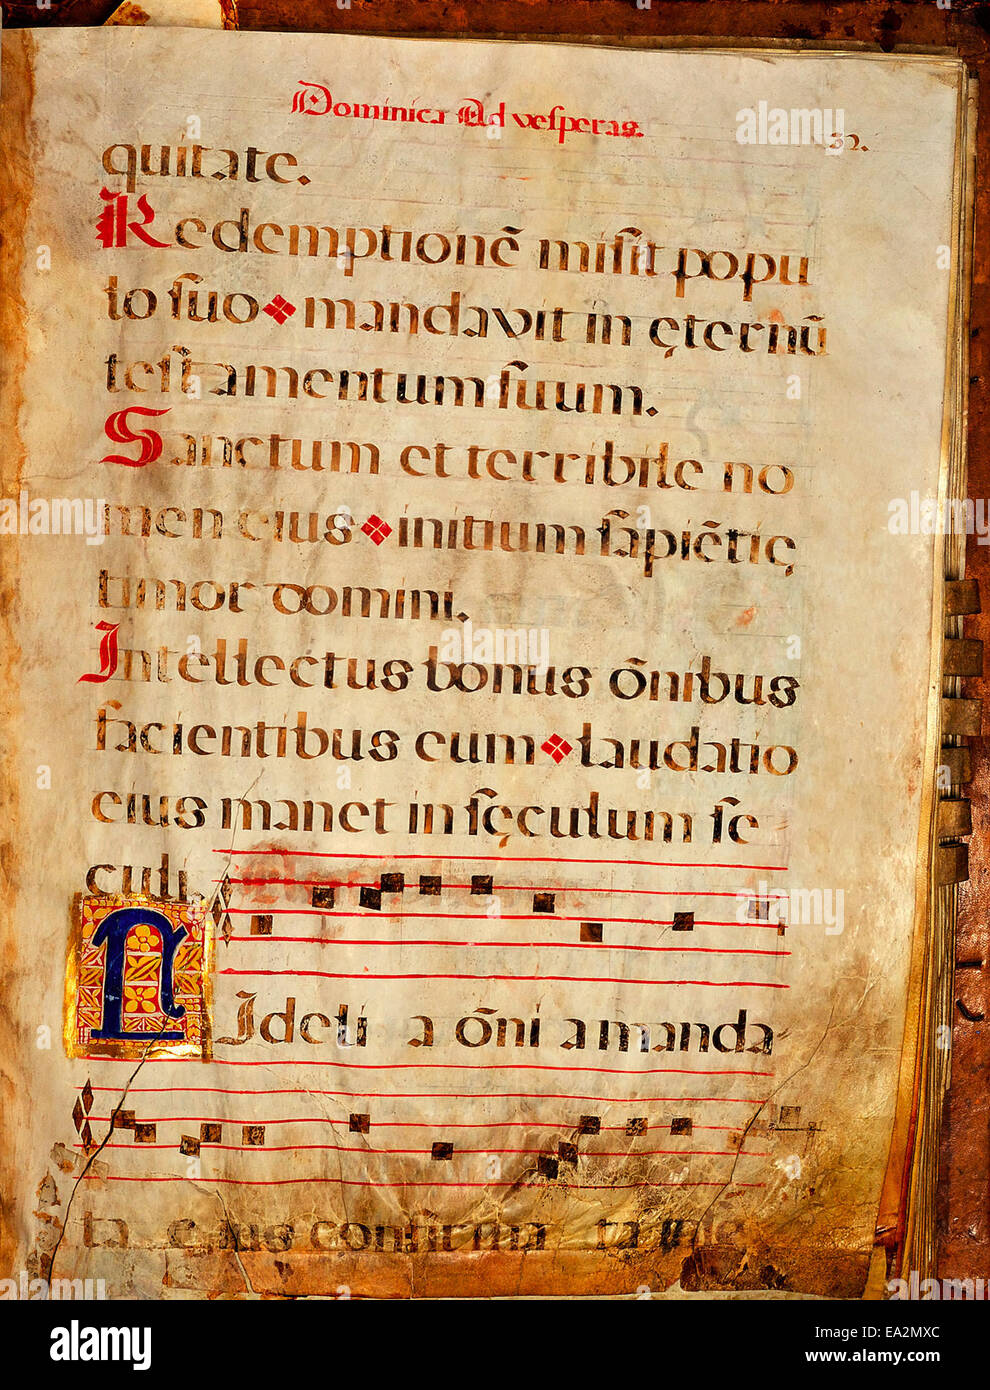 Dominica Ad vesperas.
32.
quitate.
Redemptionē misit popu
lo suo mandavit in ęternū
testamentum suum.
Sanctum et terribile no
men eius initium sapiētię
timor domini.
Intellectus bonus ōnibus
facientibus eum laudatio
eius manet in sęculum sę
culi.
Fideli a ōni a manda
ta ejus confirma ta in sę
alamy
Image ID: EA2MXC
www.alamy.com